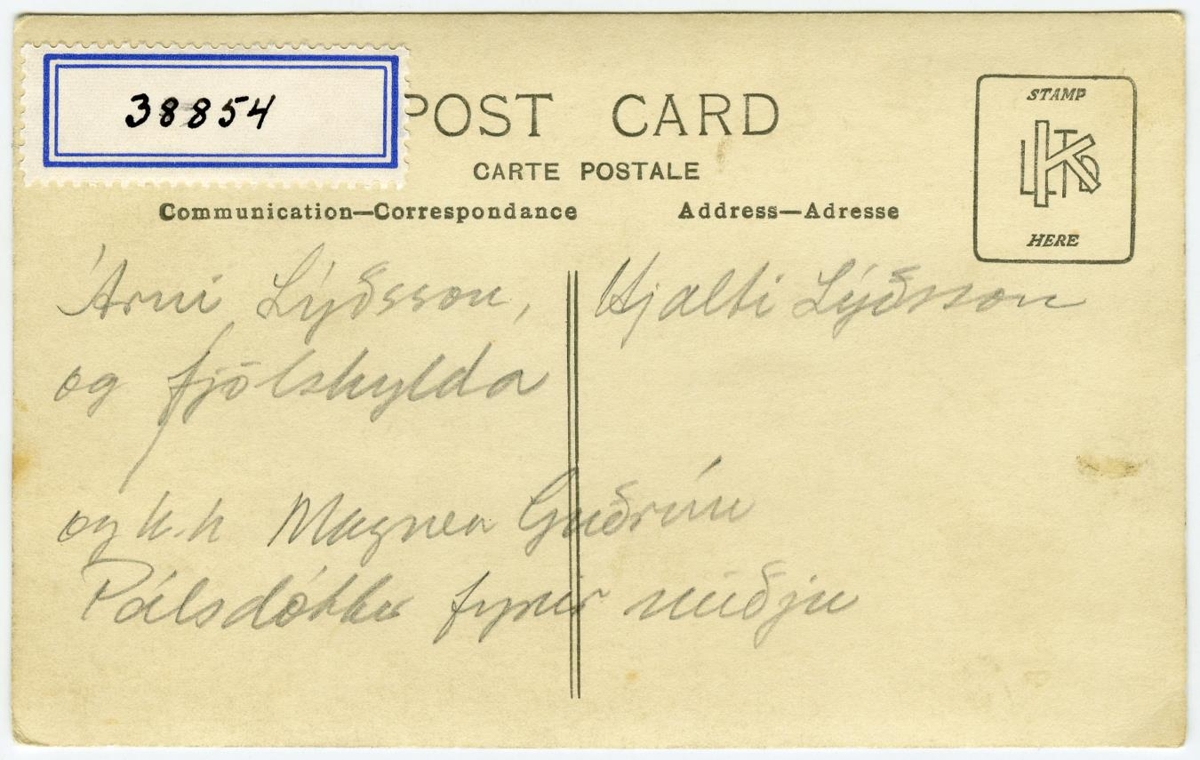 38854
POST CARD
CARTE POSTALE
Communication—Correspondance
Address—Adresse
STAMP
K LTD
HERE
Árni Lýðsson,
og fjölskylda
Hjalti Lýðsson
og k.h Magnea Guðrún
Pálsdóttir fyrir miðju